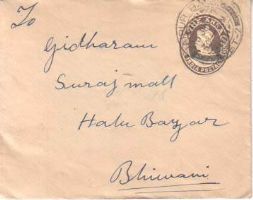 To
Gidharam
Surajmall
Halu Bazar
Bhiwani